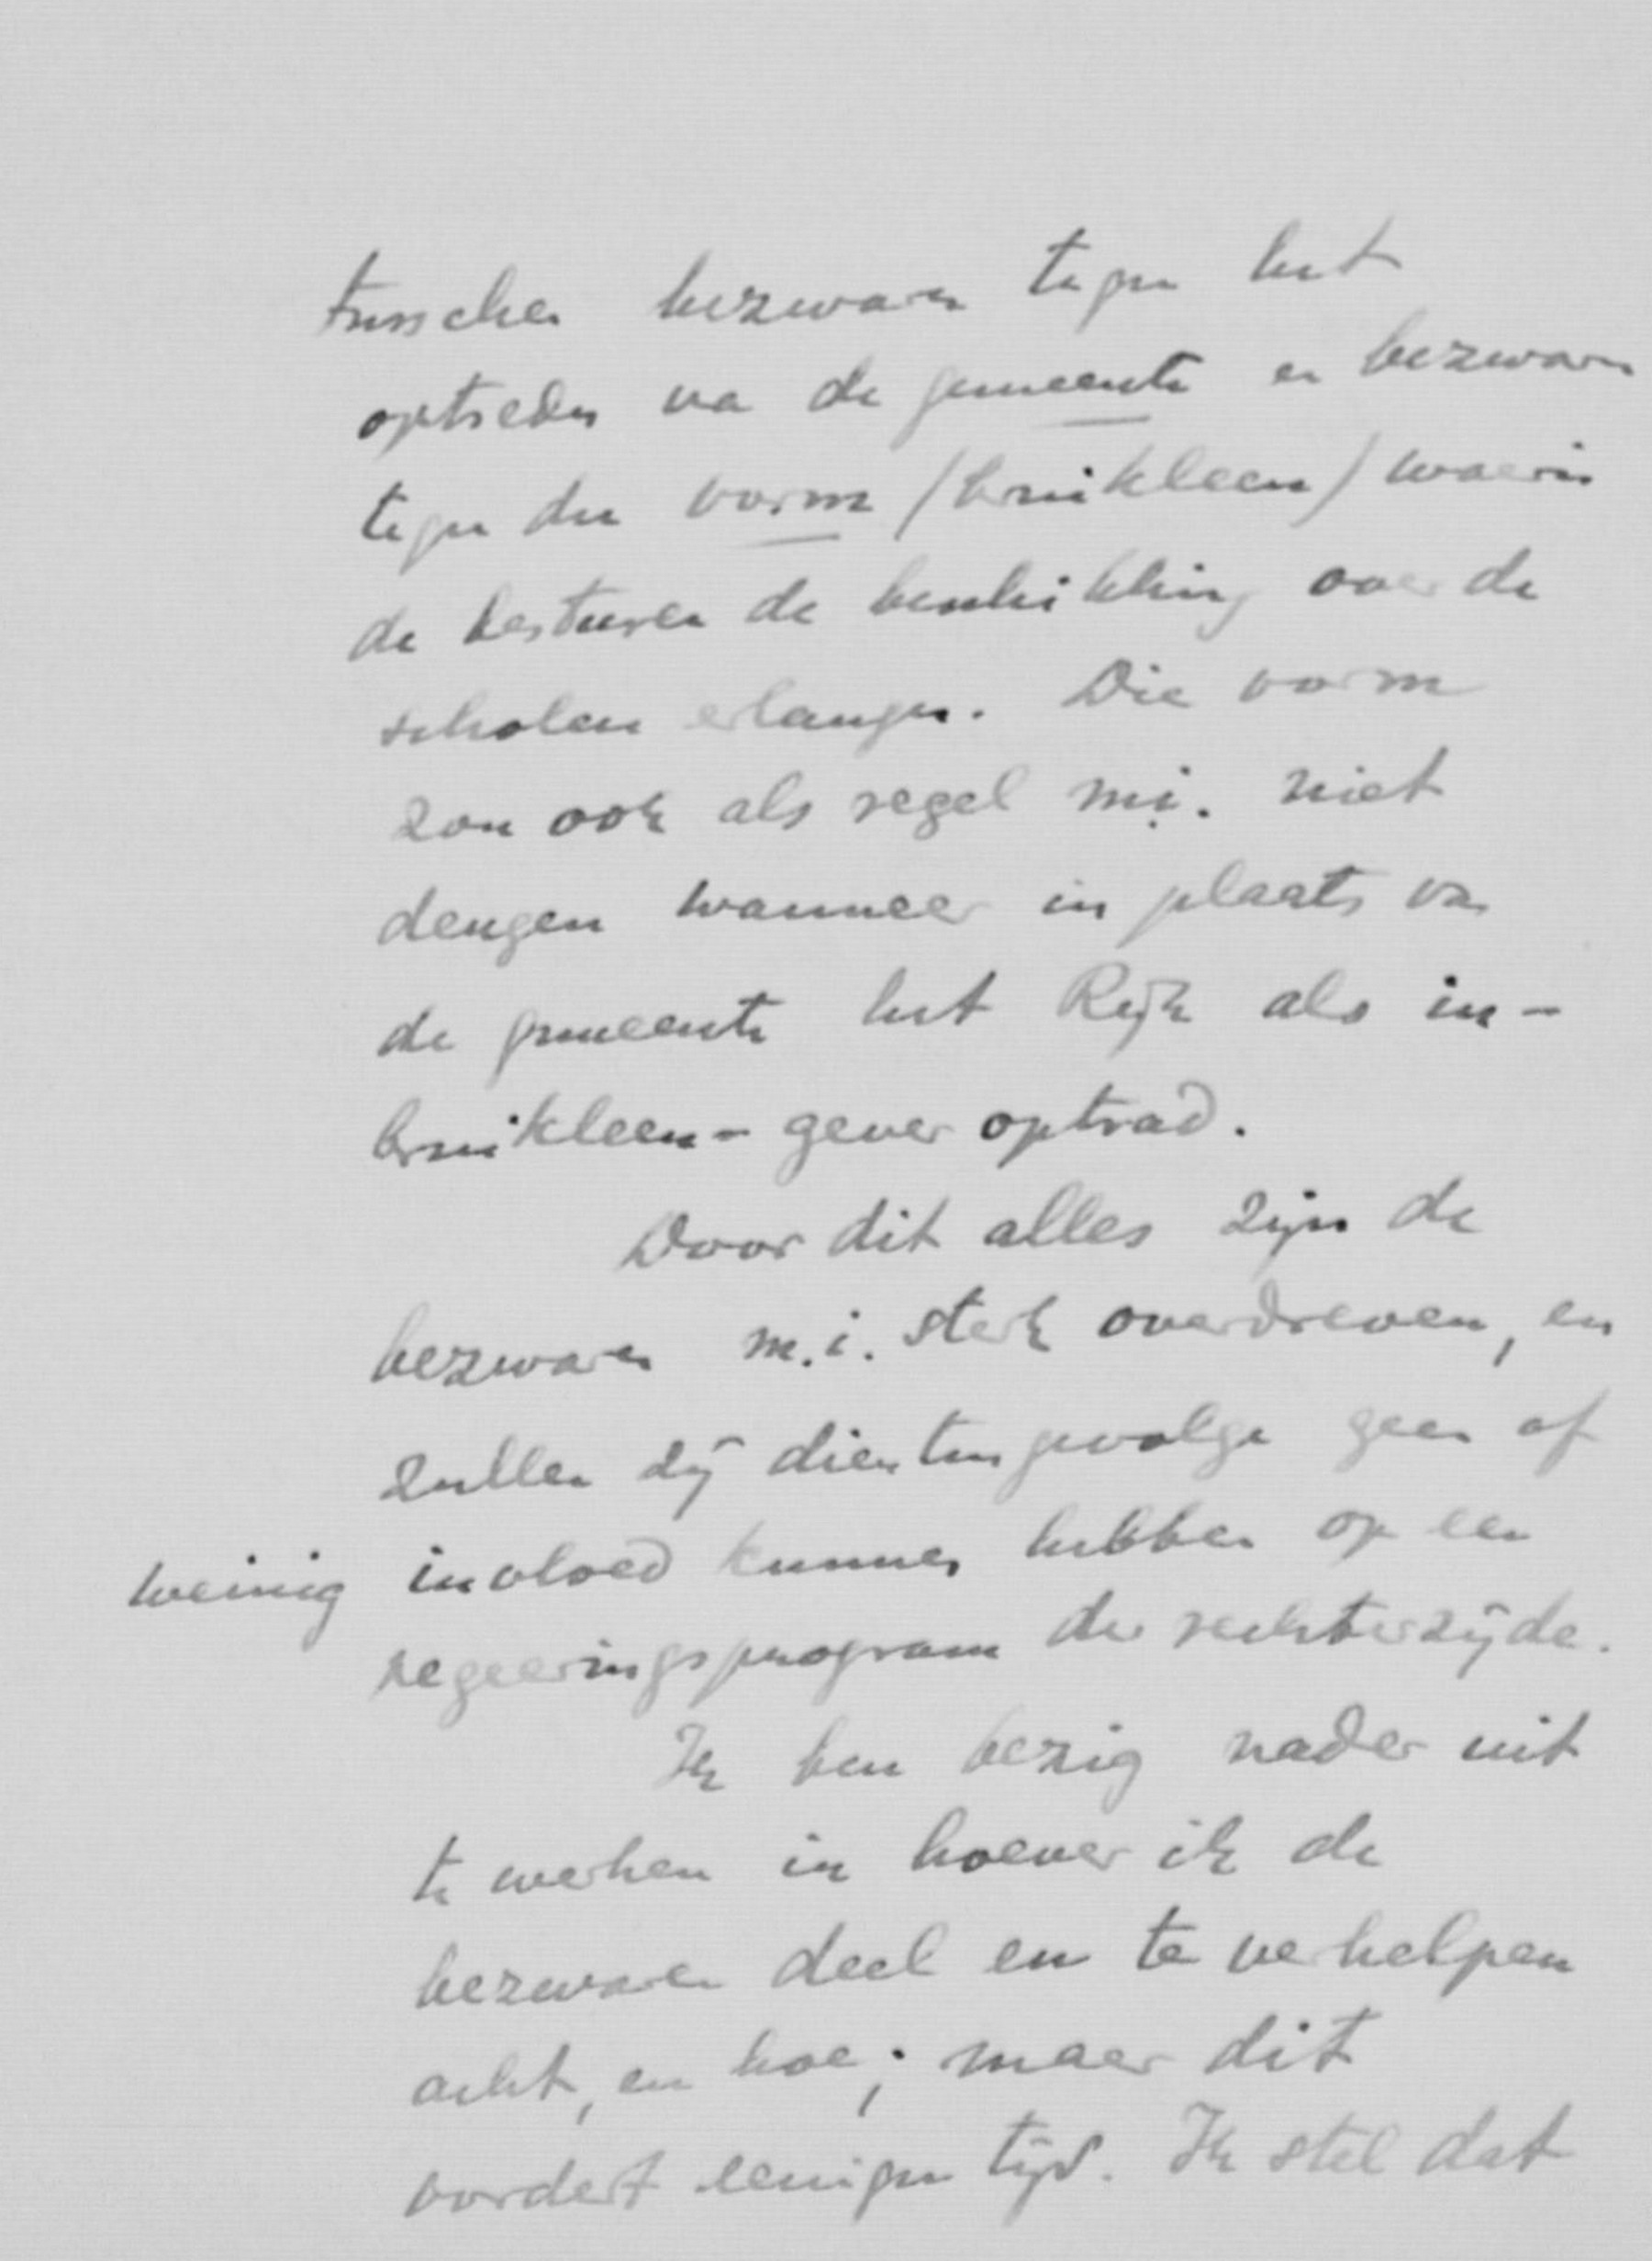 tusschen bezwaren tegen het
optreden van de gemeente en bezwaren
tegen den vorm (bruikleen) waarin
de besturen de beschikking over de
scholen erlangen. Die vorm
zou ook als regel m.i. niet
deugen wanneer in plaats van
de gemeente het Rijk als in-
bruikleen-gever optrad.
Door dit alles zijn de
bezwaren m.i. sterk overdreven, en
zullen zij dientengevolge geen of
weinig invloed kunnen hebben op een
regeeringsprogram der rechterzijde.
Ik ben bezig nader uit
te werken in hoever ik de
bezwaren deel en te verhelpen
acht, en hoe; maar dit
vordert eenigen tijd. Ik stel dat